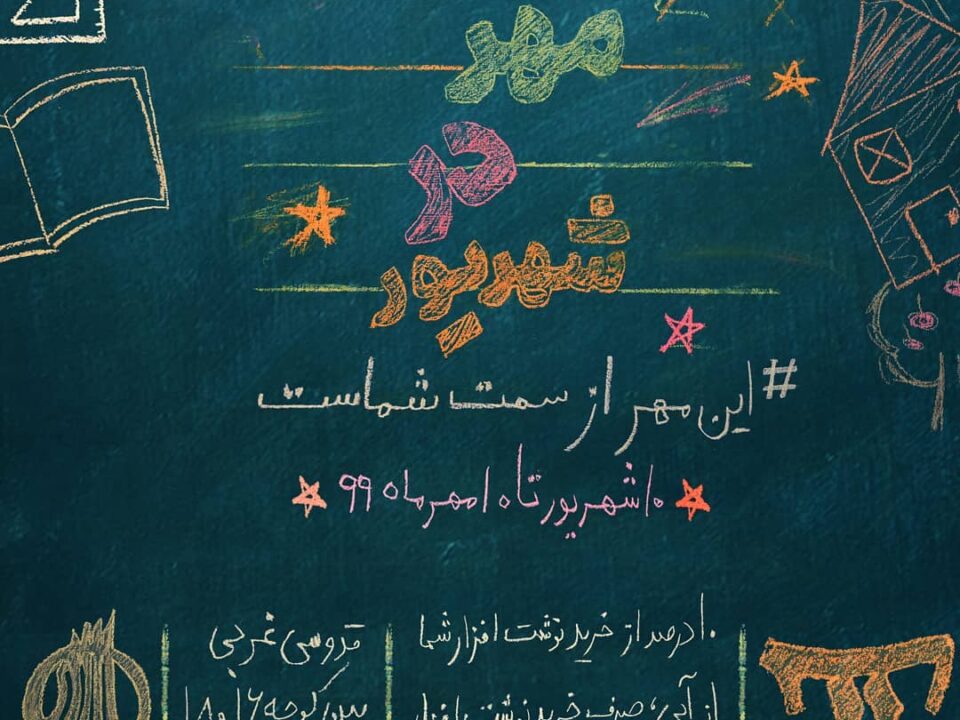 مهر
در
شهریور
#این مهر از سمت شماست
۱۰ شهریور تا ۱۰ مهرماه ۹۹
۱۰ درصد از خرید نوشت افزار شما
از آبی، صرف خرید نوشت افزار
قدوسی غربی
بین کوچه ۱۶ و ۱۸